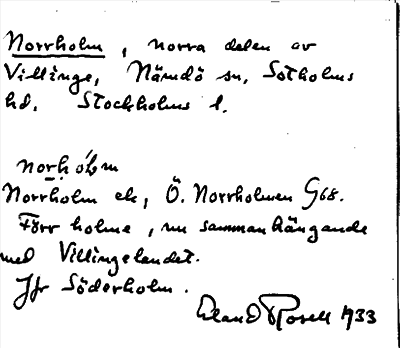 Norrholm, norra delen av
Villinge, Nämdö sn, Sotholms
hd. Stockholms l.
norhòlm
Norrholm ek, Ö. Norrholmen G68.
Förr holme, nu sammanhängande
med Villingelandet.
Jfr Söderholm.
Erland Rosell 1933